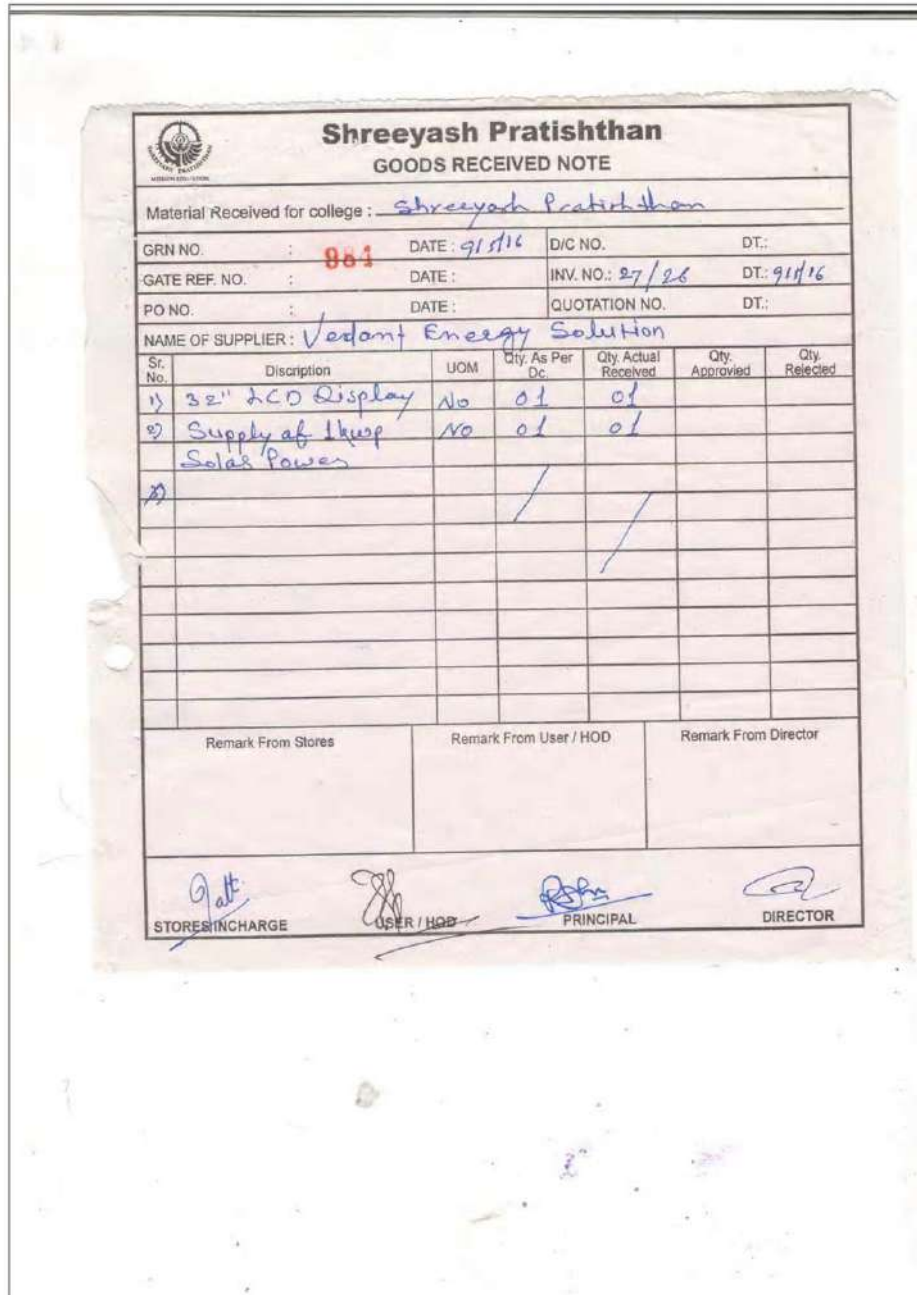 Shreeyash Pratishthan
GOODS RECEIVED NOTE
Material Received for college : Shreeyash Pratishthan
GRN NO. : 984 DATE : 9/5/16 D/C NO. DT.:
GATE REF. NO. : DATE : INV. NO.: 27/26 DT.: 9/5/16
PO NO. : DATE : QUOTATION NO. DT.:
NAME OF SUPPLIER : Vedant Energy Solution
Sr. No. Discription UOM Qty. As Per Dc. Qty. Actual Received Qty. Approvied Qty. Relected
1) 32" LCD Display No 01 01
2) Supply of 1kwp No 01 01
Solar Power
3)
Remark From Stores Remark From User / HOD Remark From Director
STORES INCHARGE USER / HOD PRINCIPAL DIRECTOR